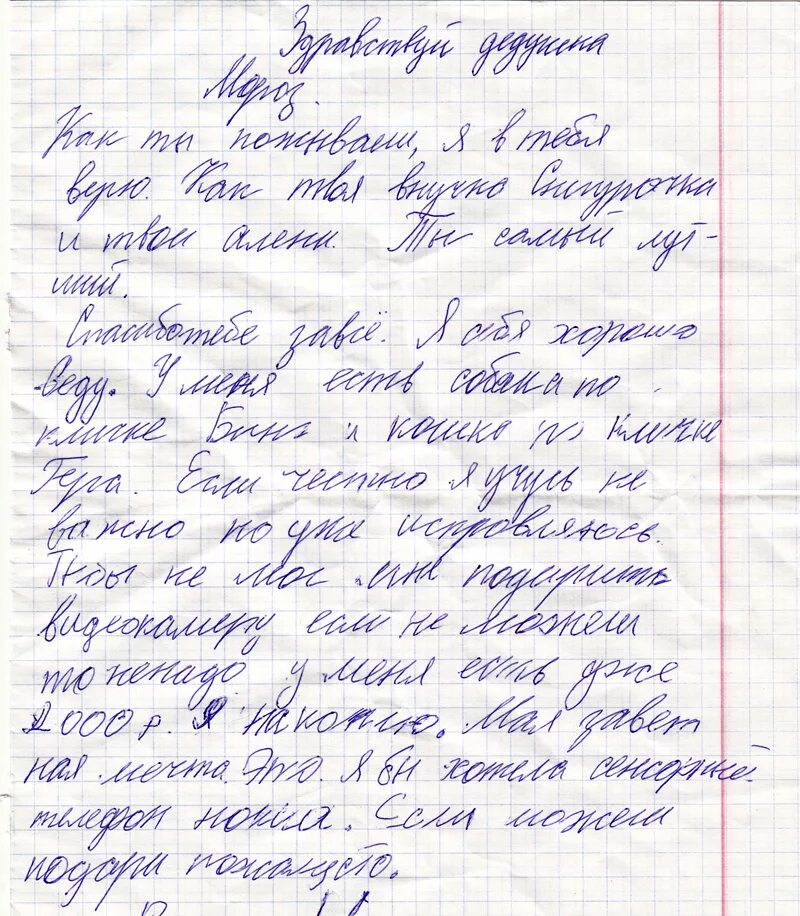 Здравствуй дедушка
Мороз.
Как ты поживаеш, я в тебя
верю. Как твоя внучка Снигурочка
и твои алени. Ты самый луч-
ший.
Спасиботебе завсё. Я себя хорошо
веду. У меня есть собака по
кличке Бинг и кошка по кличке
Гера. Если честно я учусь не
важно но уже исправляюсь.
Тыбы не мог мне подарить
видеокамеру если не можеш
то ненадо у меня есть уже
2000 р. Я накоплю. Моя завет
ная мечта. Это. Я бы хотела сенсорный
телефон нокиа. Если можеш
подари пожалусто.